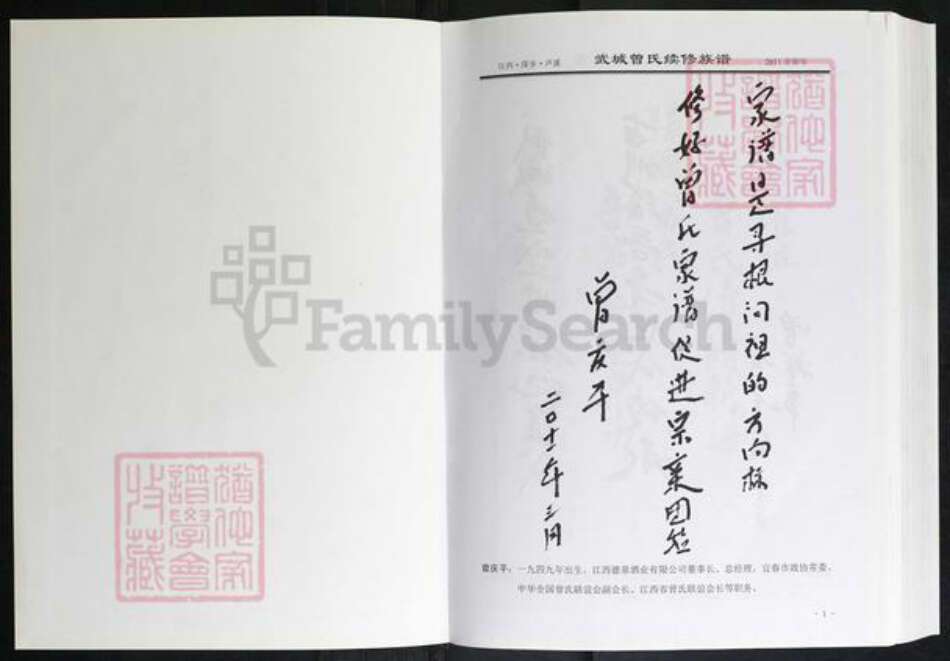 江西·萍乡·芦溪
武城曾氏续修族谱
家谱是寻根问祖的方向标
修好曾氏家谱促进宗亲团结
曾庆平
二〇十一年三月
曾庆平，一九四九年出生，江西德泉酒业有限公司董事长、总经理，宜春市政协常委，
中华全国曾氏联谊会副会长、江西省曾氏联谊会会长等职务。
- 1 -
FamilySearch
猶他家
譜學會
收藏
猶他家
譜學會
收藏